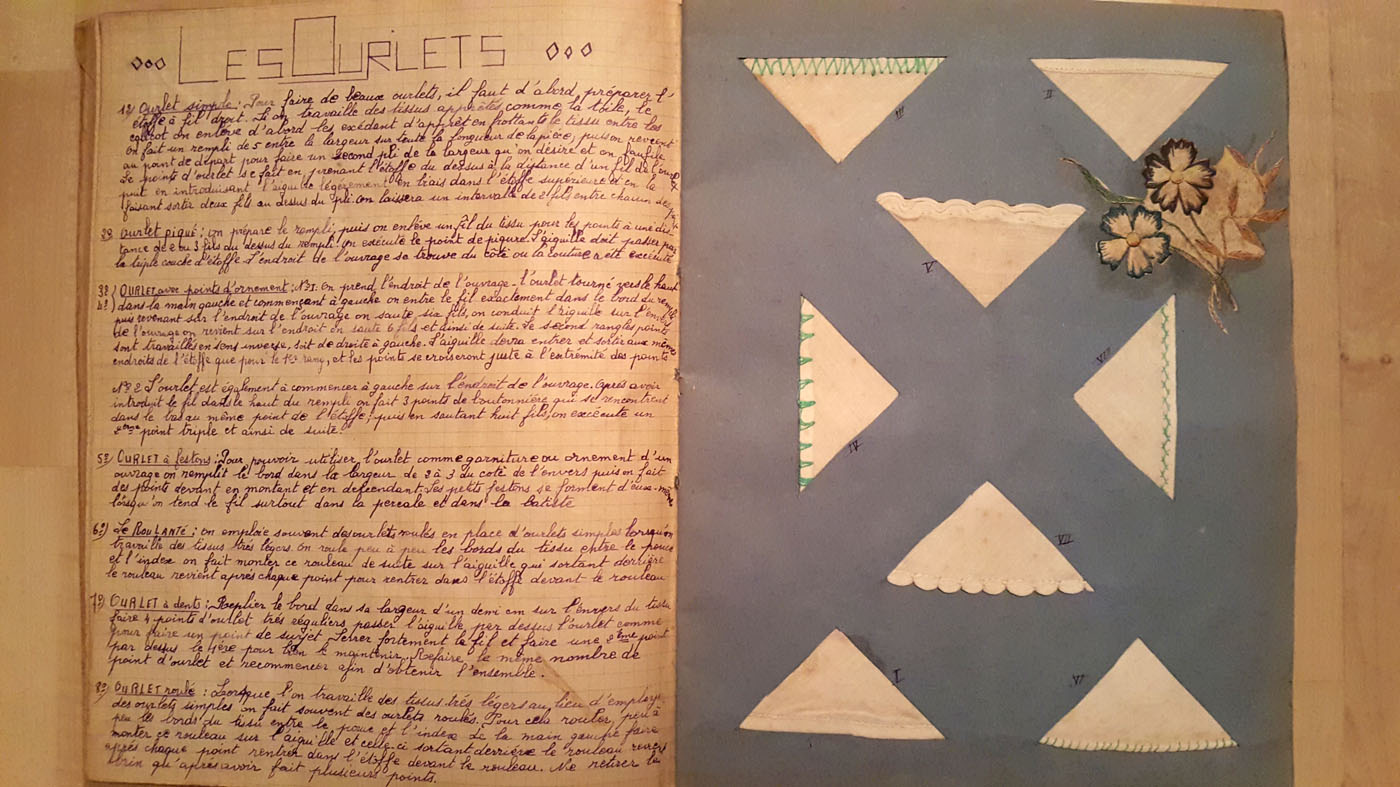 LES OURLETS
1º) Ourlet simple : Pour faire de beaux ourlets, il faut d'abord, préparer l'
étoffe à fil droit. Si on travaille des tissus apprêtés comme la toile, le
calicot on enlève d'abord les exédant d'apprêt en frottant le tissu entre les
on fait un rempli de 5 entre la largeur sur toute la longueur de la pièce, puis on revient
au point de départ pour faire un second pli de la largeur qu'on désire et on faufile
Le points d'ourlet se fait en prenant l'étoffe du dessus à la distance d'un fil de l'ourlet
puit en introduisant l'aiguille légèrement en biais dans l'étoffe supérieure et en la
faisant sortir deux fils au dessus du pli. on laissera un intervalle de 2 fils entre chacun des
2º) Ourlet piqué : on prépare le rempli, puis on enlève un fil du tissu pour les points à une dis-
tance de 2 ou 3 fils du dessus du rempli. On exécute le point de piqure. L'aiguille doit passer par
la triple couche d'étoffe. L'endroit de l'ouvrage se trouve du côté ou la couture a été exécutée
3º) OURLET avec points d'ornement : Nº I. On prend l'endroit de l'ouvrage - l'ourlet tourné vers le haut
4º) dans la main gauche et commençant à gauche on entre le fil exactement dans le bord du rempli
puis revenant sur l'endroit de l'ouvrage on saute six fils, on conduit l'aiguille sur l'envers
de l'ouvrage on revient sur l'endroit on saute 6 fils et ainsi de suite. Le second rangles points
sont travaillés en sens inverse, soit de droite à gauche. L'aiguille devra entrer et sortir aux mêmes
endroits de l'étoffe que pour le 1er rang, et les points se croiseront juste à l'extrémité des points
Nº 2 L'ourlet est également à commencer à gauche sur l'endroit de l'ouvrage. Après avoir
introduit le fil dans le haut du rempli on fait 3 points de boutonnière qui se rencontrent
dans le bas au même point de l'étoffe ; puis en sautant huit fils, on exécute un
2ème point triple et ainsi de suite.
5º) OURLET à festons : Pour pouvoir utiliser l'ourlet comme garniture ou ornement d'un
ouvrage on remplit le bord dans la largeur de 2 à 3 du coté de l'envers puis on fait
des points devant en montant et en descendant. Les petits festons se forment d'eux-même
lorsqu'on tend le fil surtout dans la percale et dans la batiste
6º) Le ROULANTÉ : on emploie souvent des ourlets roulés en place d'ourlets simples lorsqu'on
travaille des tissus très légers. On roule peu à peu les bords du tissu entre le pouce
et l'index on fait monter ce rouleau de suite sur l'aiguille qui sortant derrière
le rouleau revient après chaque point pour rentrer dans l'étoffe devant le rouleau
7º) OURLET à dents : Replier le bord dans sa largeur d'un demi cm sur l'envers du tissu
faire 4 points d'ourlet très réguliers passer l'aiguille par dessus l'ourlet comme
pour faire un point de surjet. Serrer fortement le fil et faire une 2ème point
par dessus le 1ère pour bien le maintenir. Refaire le même nombre de
point d'ourlet et recommencer afin d'obtenir l'ensemble.
8º) OURLET roulé : Lorsque l'on travaille des tissus très légers au lieu d'employer
des ourlets simples on fait souvent des ourlets roulés. Pour cela rouler peu à
peu les bords du tissu entre le pouce et l'index de la main gauche faire
monter ce rouleau sur l'aiguille et celle-ci sortant derrière le rouleau revers
après chaque point rentrer dans l'étoffe devant le rouleau. Ne retirer le
brin qu'après avoir fait plusieurs points.
III
II
V
IV
VIII
VII
I
VI